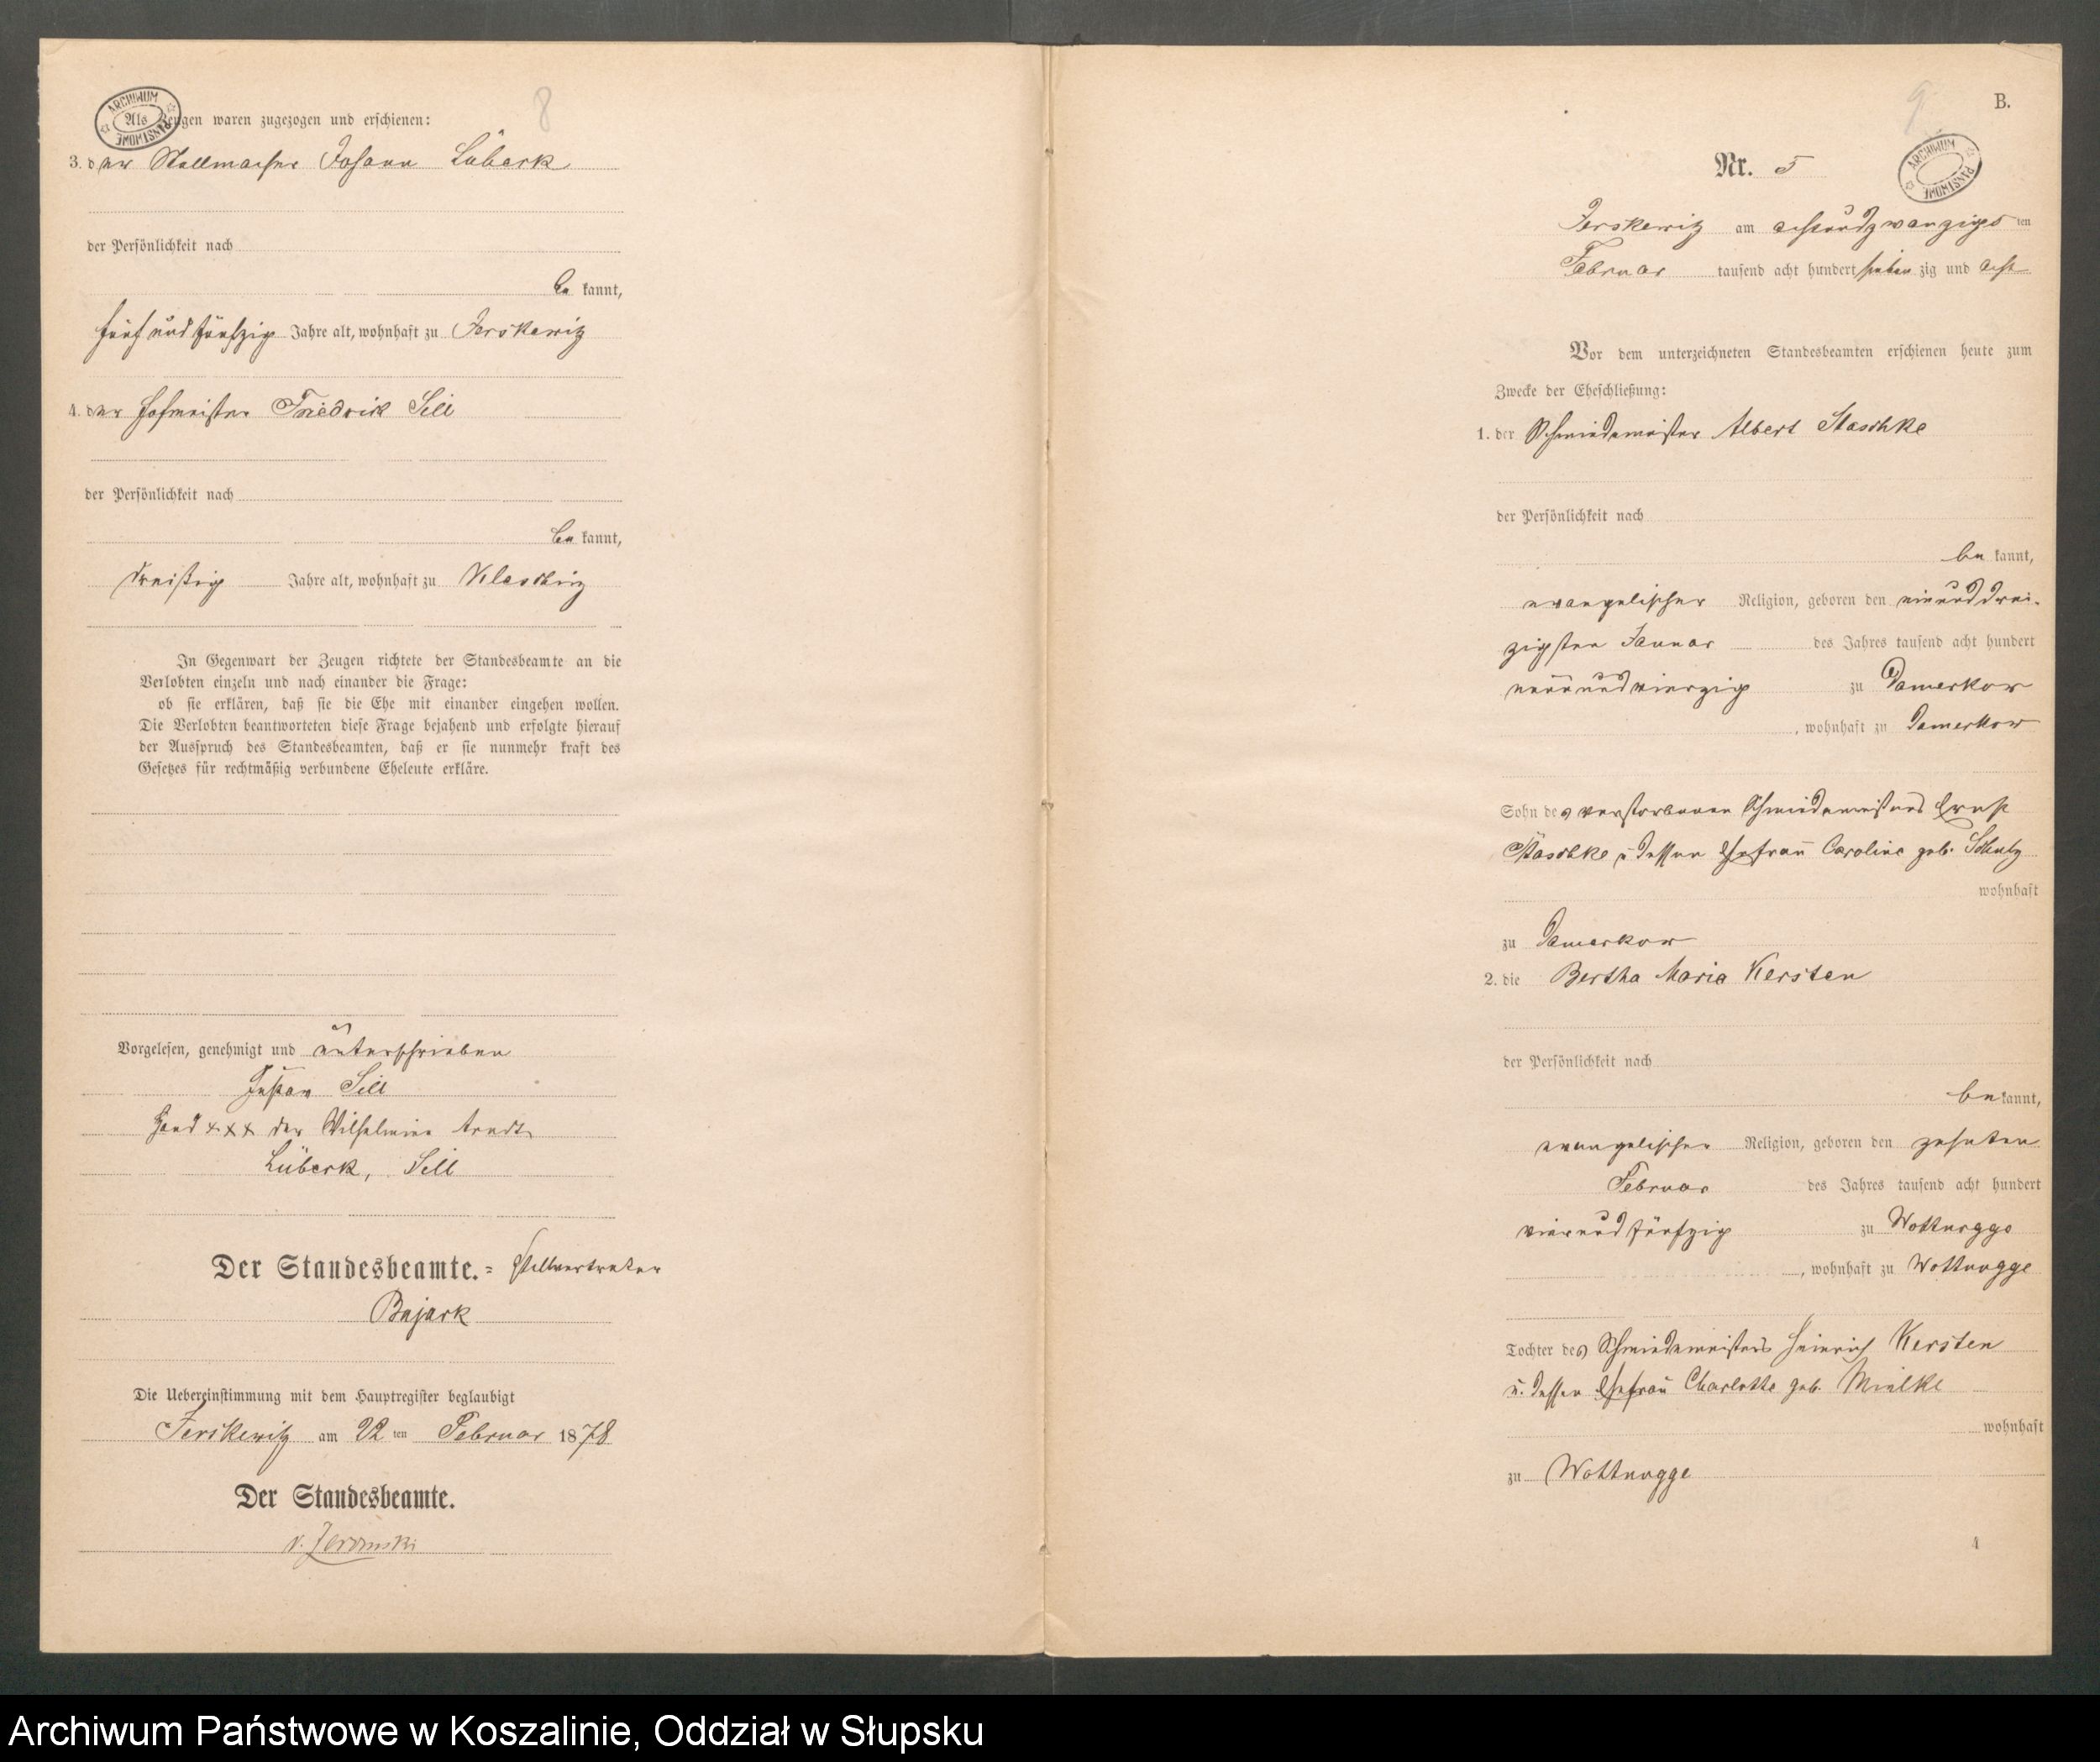 8
ARCHIWUM PAŃSTWOWE
Als Zeugen waren zugezogen und erschienen:
3. der Stellmacher Johann Lübeck
der Persönlichkeit nach
be kannt,
fünf und fünfzig Jahre alt, wohnhaft zu Jerskewitz
4. der Hofmeister Friedrich Sell
der Persönlichkeit nach
be kannt,
dreißig Jahre alt, wohnhaft zu Kleschinz
In Gegenwart der Zeugen richtete der Standesbeamte an die
Verlobten einzeln und nach einander die Frage:
ob sie erklären, daß sie die Ehe mit einander eingehen wollen.
Die Verlobten beantworteten diese Frage bejahend und erfolgte hierauf
der Ausspruch des Standesbeamten, daß er sie nunmehr kraft des
Gesetzes für rechtmäßig verbundene Eheleute erkläre.
Vorgelesen, genehmigt und unterschrieben
Gustav Sell
Hand xxx der Wilhelmine Arndt
Lübeck, Sell
Der Standesbeamte.= Stellvertreter
Bujack
Die Uebereinstimmung mit dem Hauptregister beglaubigt
Jerskewitz am 22 ten Februar 1878
Der Standesbeamte.
v. Zeromski
9
B.
ARCHIWUM PAŃSTWOWE
Nr. 5
Jerskewitz am achtundzwanzigs ten
Februar tausend acht hundert sieben zig und acht
Vor dem unterzeichneten Standesbeamten erschienen heute zum
Zwecke der Eheschließung:
1. der Schmiedemeister Albert Staschke
der Persönlichkeit nach
be kannt,
evangelischer Religion, geboren den einunddrei-
zigsten Januar des Jahres tausend acht hundert
neunundvierzig zu Damerkow
, wohnhaft zu Damerkow
Sohn des verstorbenen Schmiedemeisters Ernst
Staschke u dessen Ehefrau Caroline geb. Schulz
wohnhaft
zu Damerkow
2. die Bertha Maria Kersten
der Persönlichkeit nach
be kannt,
evangelischer Religion, geboren den zehnten
Februar des Jahres tausend acht hundert
vierundfünfzig zu Wottnogge
, wohnhaft zu Wottnogge
Tochter des Schmiedemeisters Heinrich Kersten
u. dessen Ehefrau Charlotte geb. Mielke
wohnhaft
zu Wottnogge
Archiwum Państwowe w Koszalinie, Oddział w Słupsku